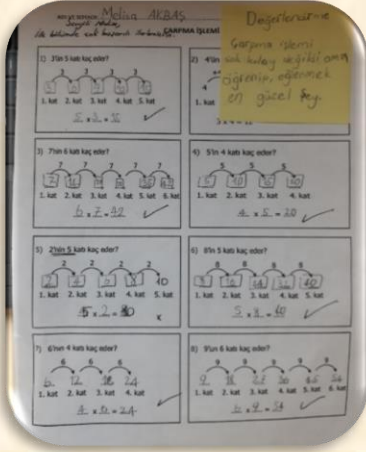 ADI VE SOYADI: Melisa AKBAŞ
Sevgili Melisa,
ÇARPMA İŞLEMİ
Değerlendirme
Çarpma işlemi
çok kolay değildi ama
öğrenin, öğrenmek
en güzel şey.
1) 3'ün 5 katı kaç eder?
3 3 3 3
1. kat 2. kat 3. kat 4. kat 5. kat
2) 4'ün
4
1. kat
3) 7'nin 6 katı kaç eder?
7 7 7 7 7
1. kat 2. kat 3. kat 4. kat 5. kat 6. kat
6 x 7 = 42
4) 5'in 4 katı kaç eder?
5 5 5
1. kat 2. kat 3. kat 4. kat
4 x 5 = 20
5) 2'nin 5 katı kaç eder?
2 2 2 2
2 4 6 8 10
1. kat 2. kat 3. kat 4. kat 5. kat
5 x 2 = 10
x
6) 8'in 5 katı kaç eder?
8 8 8 8
1. kat 2. kat 3. kat 4. kat 5. kat
5 x 8 = 40
7) 6'nın 4 katı kaç eder?
6 6 6
6 12 18 24
1. kat 2. kat 3. kat 4. kat
4 x 6 = 24
8) 9'un 6 katı kaç eder?
9 9 9 9 9
9 18 27 36 45 54
1. kat 2. kat 3. kat 4. kat 5. kat 6. kat
6 x 9 = 54